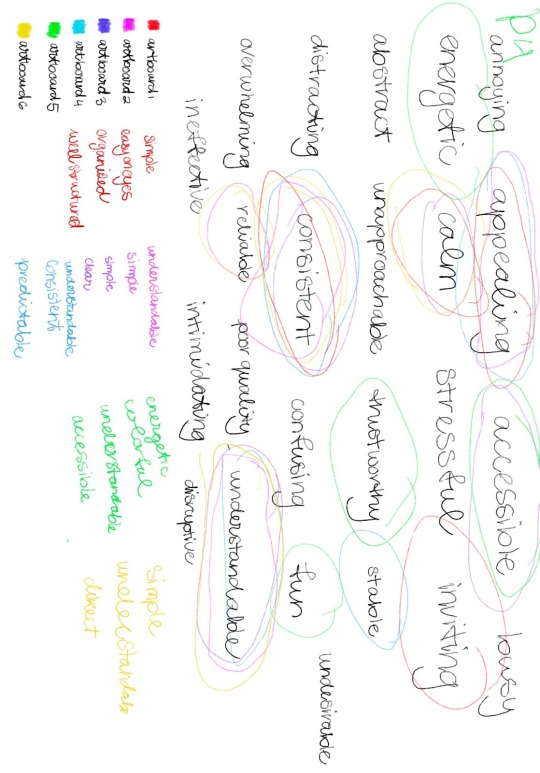 P4
annoying appealing accessible busy
energetic calm stressful inviting
abstract unapproachable trustworthy stable
distracting consistent confusing fun undesirable
overwhelming reliable poor quality understandable
ineffective intimidating disruptive
artboard 1 simple understandable energetic simple
artboard 2 easy on eyes simple colorful understandabl
artboard 3 organized simple understandable direct
artboard 4 well structured clear accessible
artboard 5 understandable
consistent
artboard 6 predictable